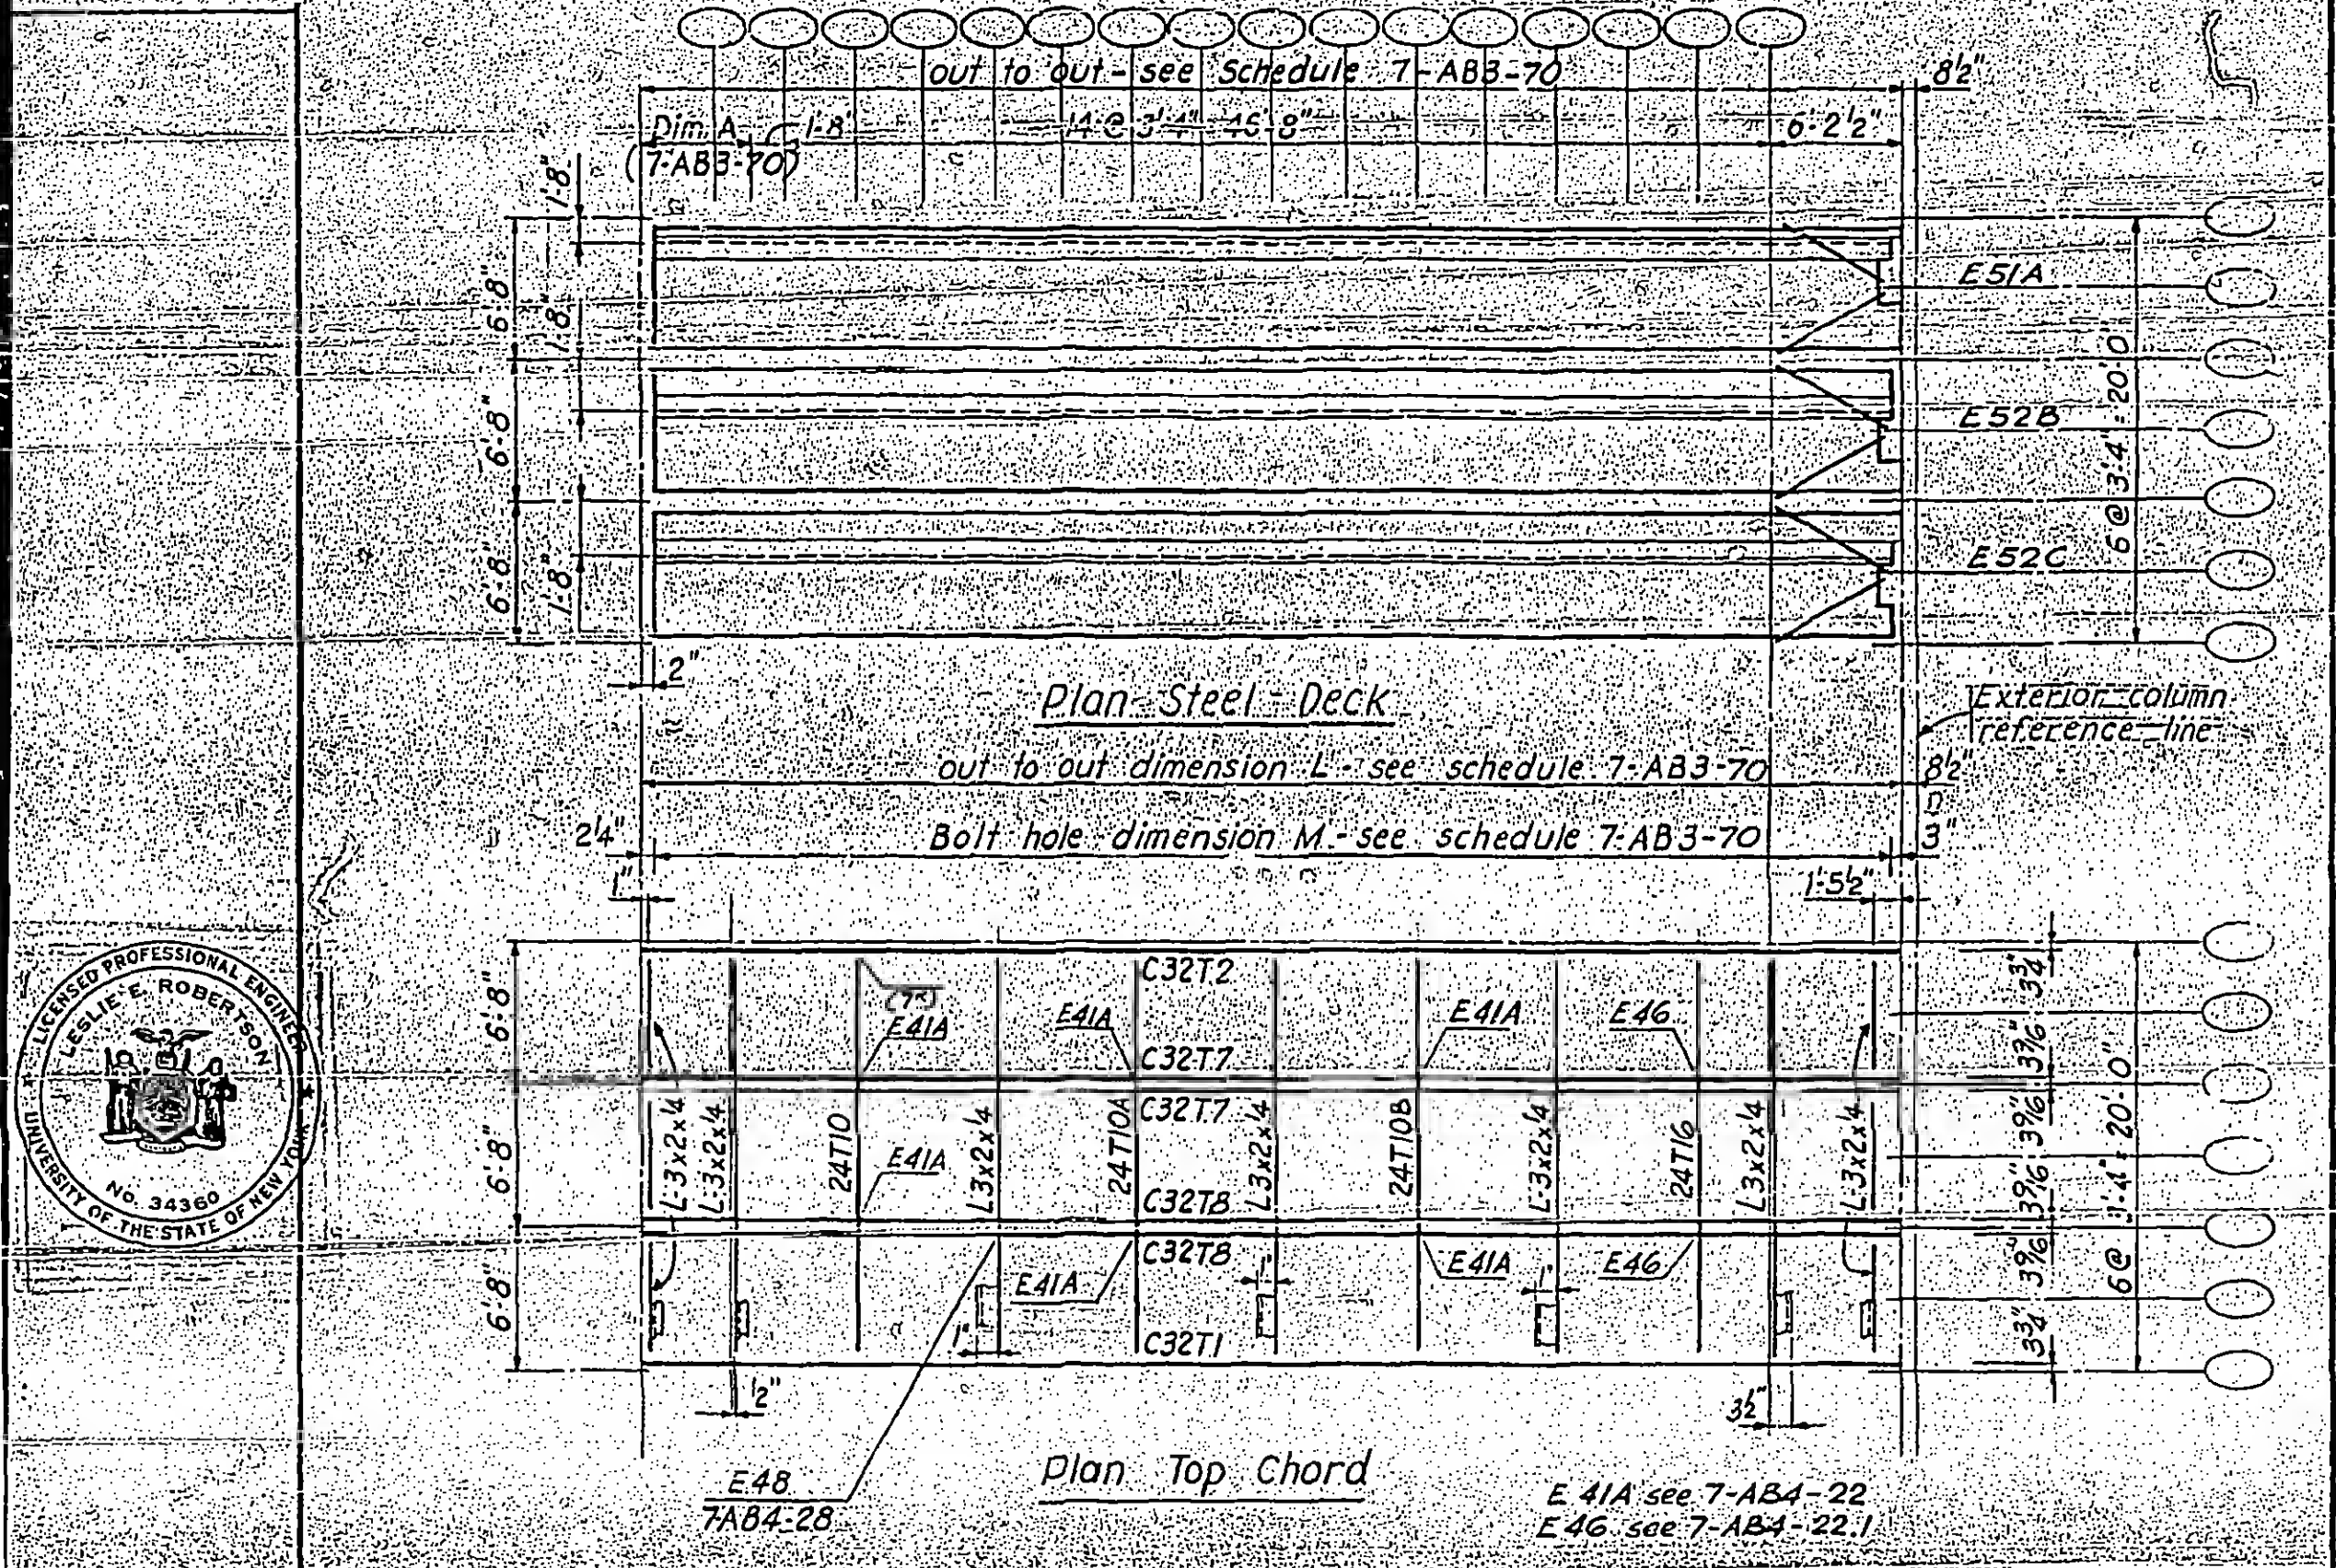 out to out - see Schedule 7-AB3-70
8½"
Dim. A
(7-AB3-70)
1'-8"
14 @ 3'-4" = 46'-8"
6'-2½"
1'-8"
6'-8"
1'-8"
6'-8"
6'-8"
1'-8"
2"
E51A
E52B
E52C
6 @ 3'-4" = 20'-0"
Plan Steel Deck
Exterior column
reference line
out to out dimension L - see schedule 7-AB3-70
8½"
2¼"
Bolt hole dimension M - see schedule 7-AB3-70
3"
1"
1'-5½"
6'-8"
6'-8"
6'-8"
C32T2
E41A
E41A
E41A
E46
C32T7
C32T7
L-3x2x¼
L-3x2x¼
24T10
E41A
L3x2x¼
24T10A
L3x2x¼
24T10B
L-3x2x¼
24T16
L3x2x¼
L-3x2x¼
C32T8
C32T8
E41A
1"
E41A
1"
E46
1"
C32T1
½"
3½"
3¾"
3 9/16"
3 9/16"
3 9/16"
3 9/16"
3¾"
6 @ 3'-4" = 20'-0"
E48
7AB4-28
Plan Top Chord
E 41A see 7-AB4-22
E 46 see 7-AB4-22.1
LICENSED PROFESSIONAL ENGINEER
LESLIE E. ROBERTSON
No. 34360
UNIVERSITY OF THE STATE OF NEW YORK